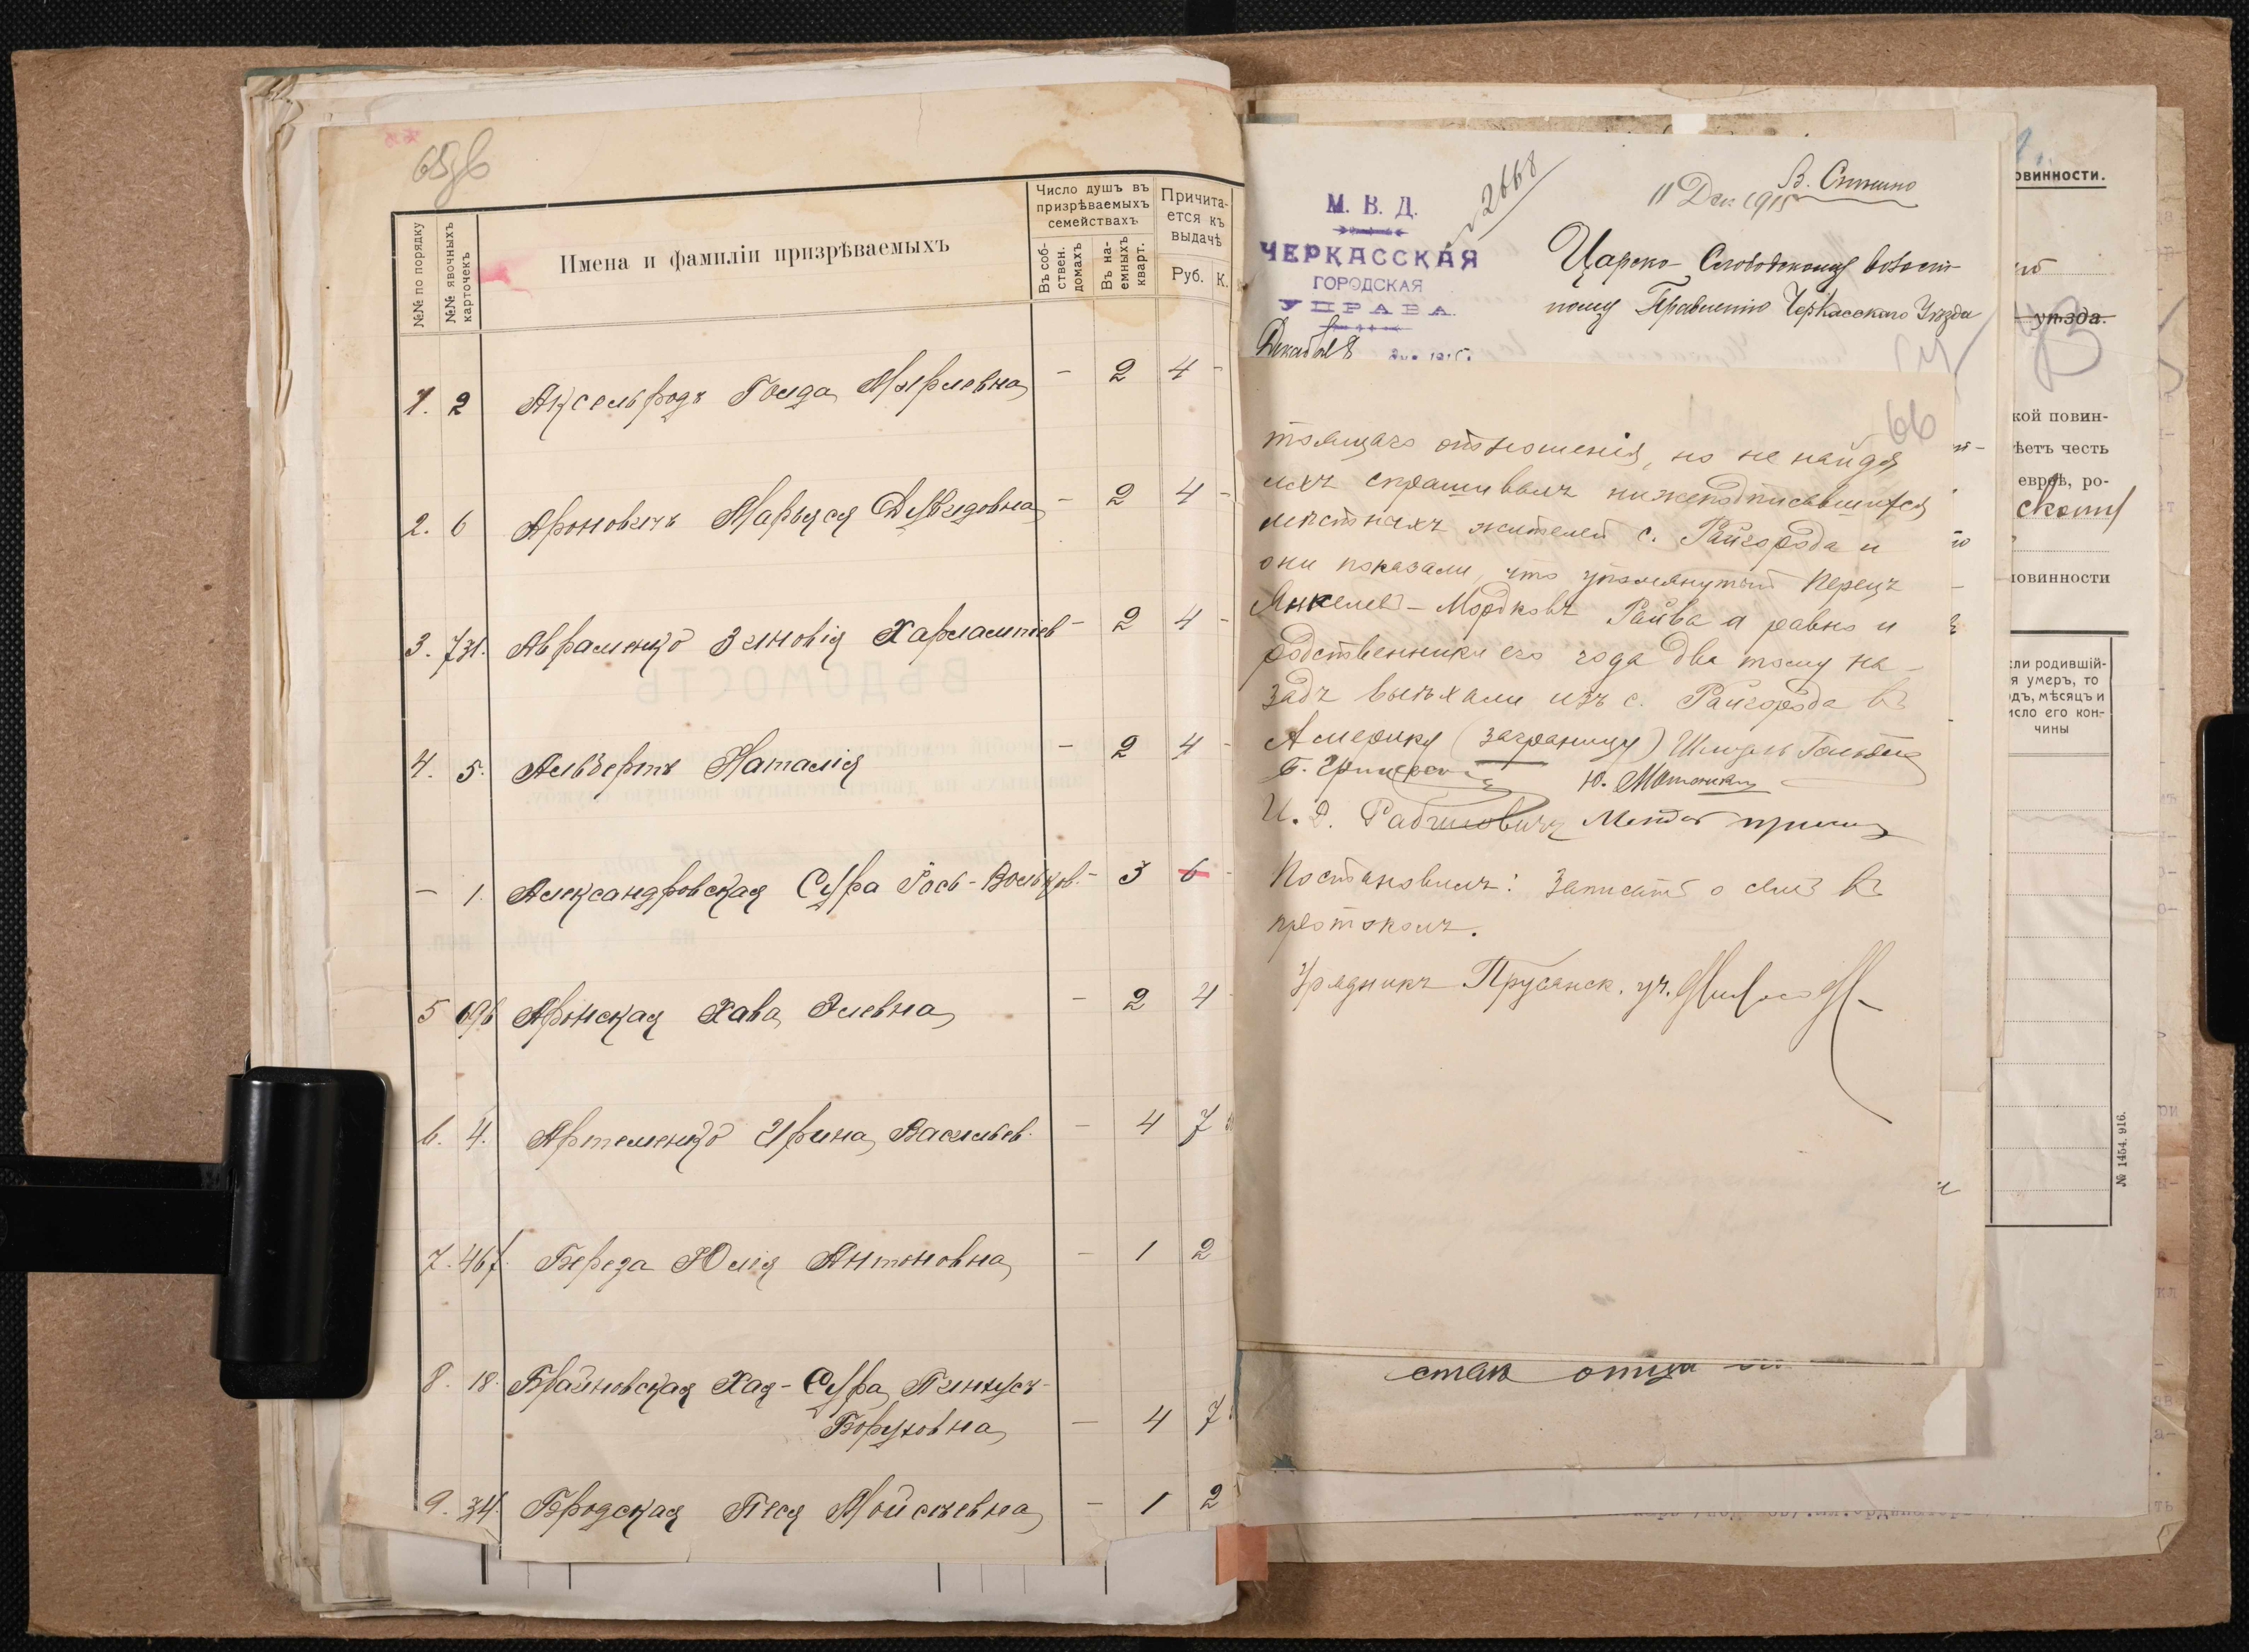 65об
№№ по порядку
№№ явочныхъ карточекъ
Имена и фамиліи призрѣваемыхъ
Число душъ въ призрѣваемыхъ семействахъ
Въ соб-
ствен.
домахъ
Въ на-
емныхъ
кварт.
Причита-
ется къ
выдачѣ
Руб. К.
1. 2 Аксельродъ Голда Мырлевна - 2 4 -
2. 6 Ароновичъ Марьяся Дувидовна - 2 4 -
3. 731. Авраменко Зиновія Харлампіев - 2 4 -
4. 5. Альбертъ Наталія - 2 4 -
- 1. Александровская Сура Рось-Вольков. - 3 6 -
5 696 Аронская Хава Элевна - 2 4
6. 4. Артеменко Ирина Васильев. - 4 7
7. 467. Береза Юлія Антоновна - 1 2
8. 18. Брайновская Хая-Сура Пинхусъ-
Боруховна - 4 7
9. 34. Бродская Песя Мойсеевна - 1 2
М. В. Д.
ЧЕРКАССКАЯ
ГОРОДСКАЯ
УПРАВА
Декабря
№ 2668
11 Дек 1915
Царско-Слободскому волост-
ному Правленію Черкасскаго Уѣзда
66
тоящаго отношенія, но не найдя
ихъ спрашивалъ нижеподписавшихся
мѣстныхъ жителей с. Райгорода и
они показали, что упомянутый Перецъ
Янкелев-Мордковъ Райва а равно и
родственники его года два тому на-
задъ выѣхали изъ с. Райгорода въ
Америку (заграницу) Шмуль
И. Рабиновичъ
Постановилъ: Записать о семъ въ
протоколъ.
Урядникъ Прусянск. уч.
стан отца
овинности.
уѣзда.
кой повин-
ѣетъ честь
евреѣ, ро-
скому
овинности
сли родившій-
я умеръ, то
одъ, мѣсяцъ и
исло его кон-
чины
№ 1454. 916.